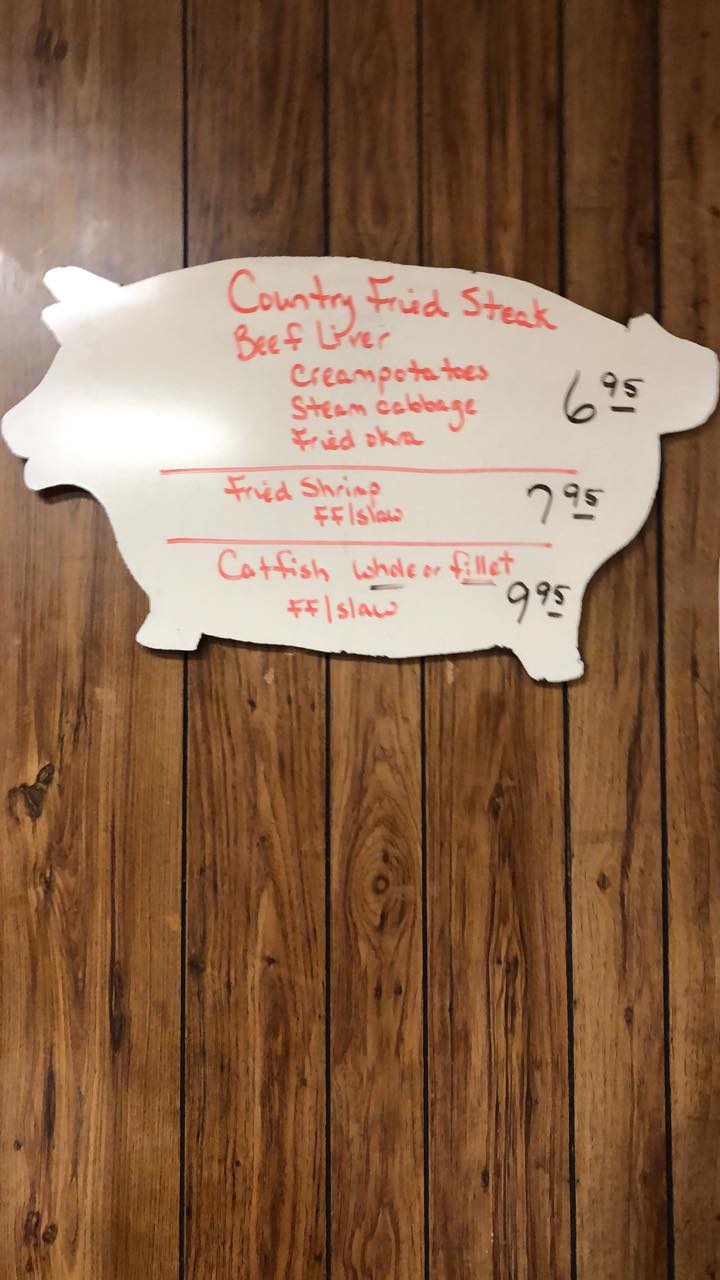 Country Fried Steak
Beef Liver
Creampotatoes
Steam cabbage
Fried okra
6 95
Fried Shrimp
FF/slaw
7 95
Catfish whole or fillet
FF/slaw
9 95